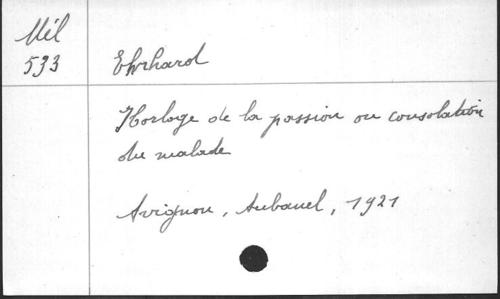 Mél
533
Ehrhard
Horloge de la passion ou consolation
du malade
Avignon, Aubanel, 1921